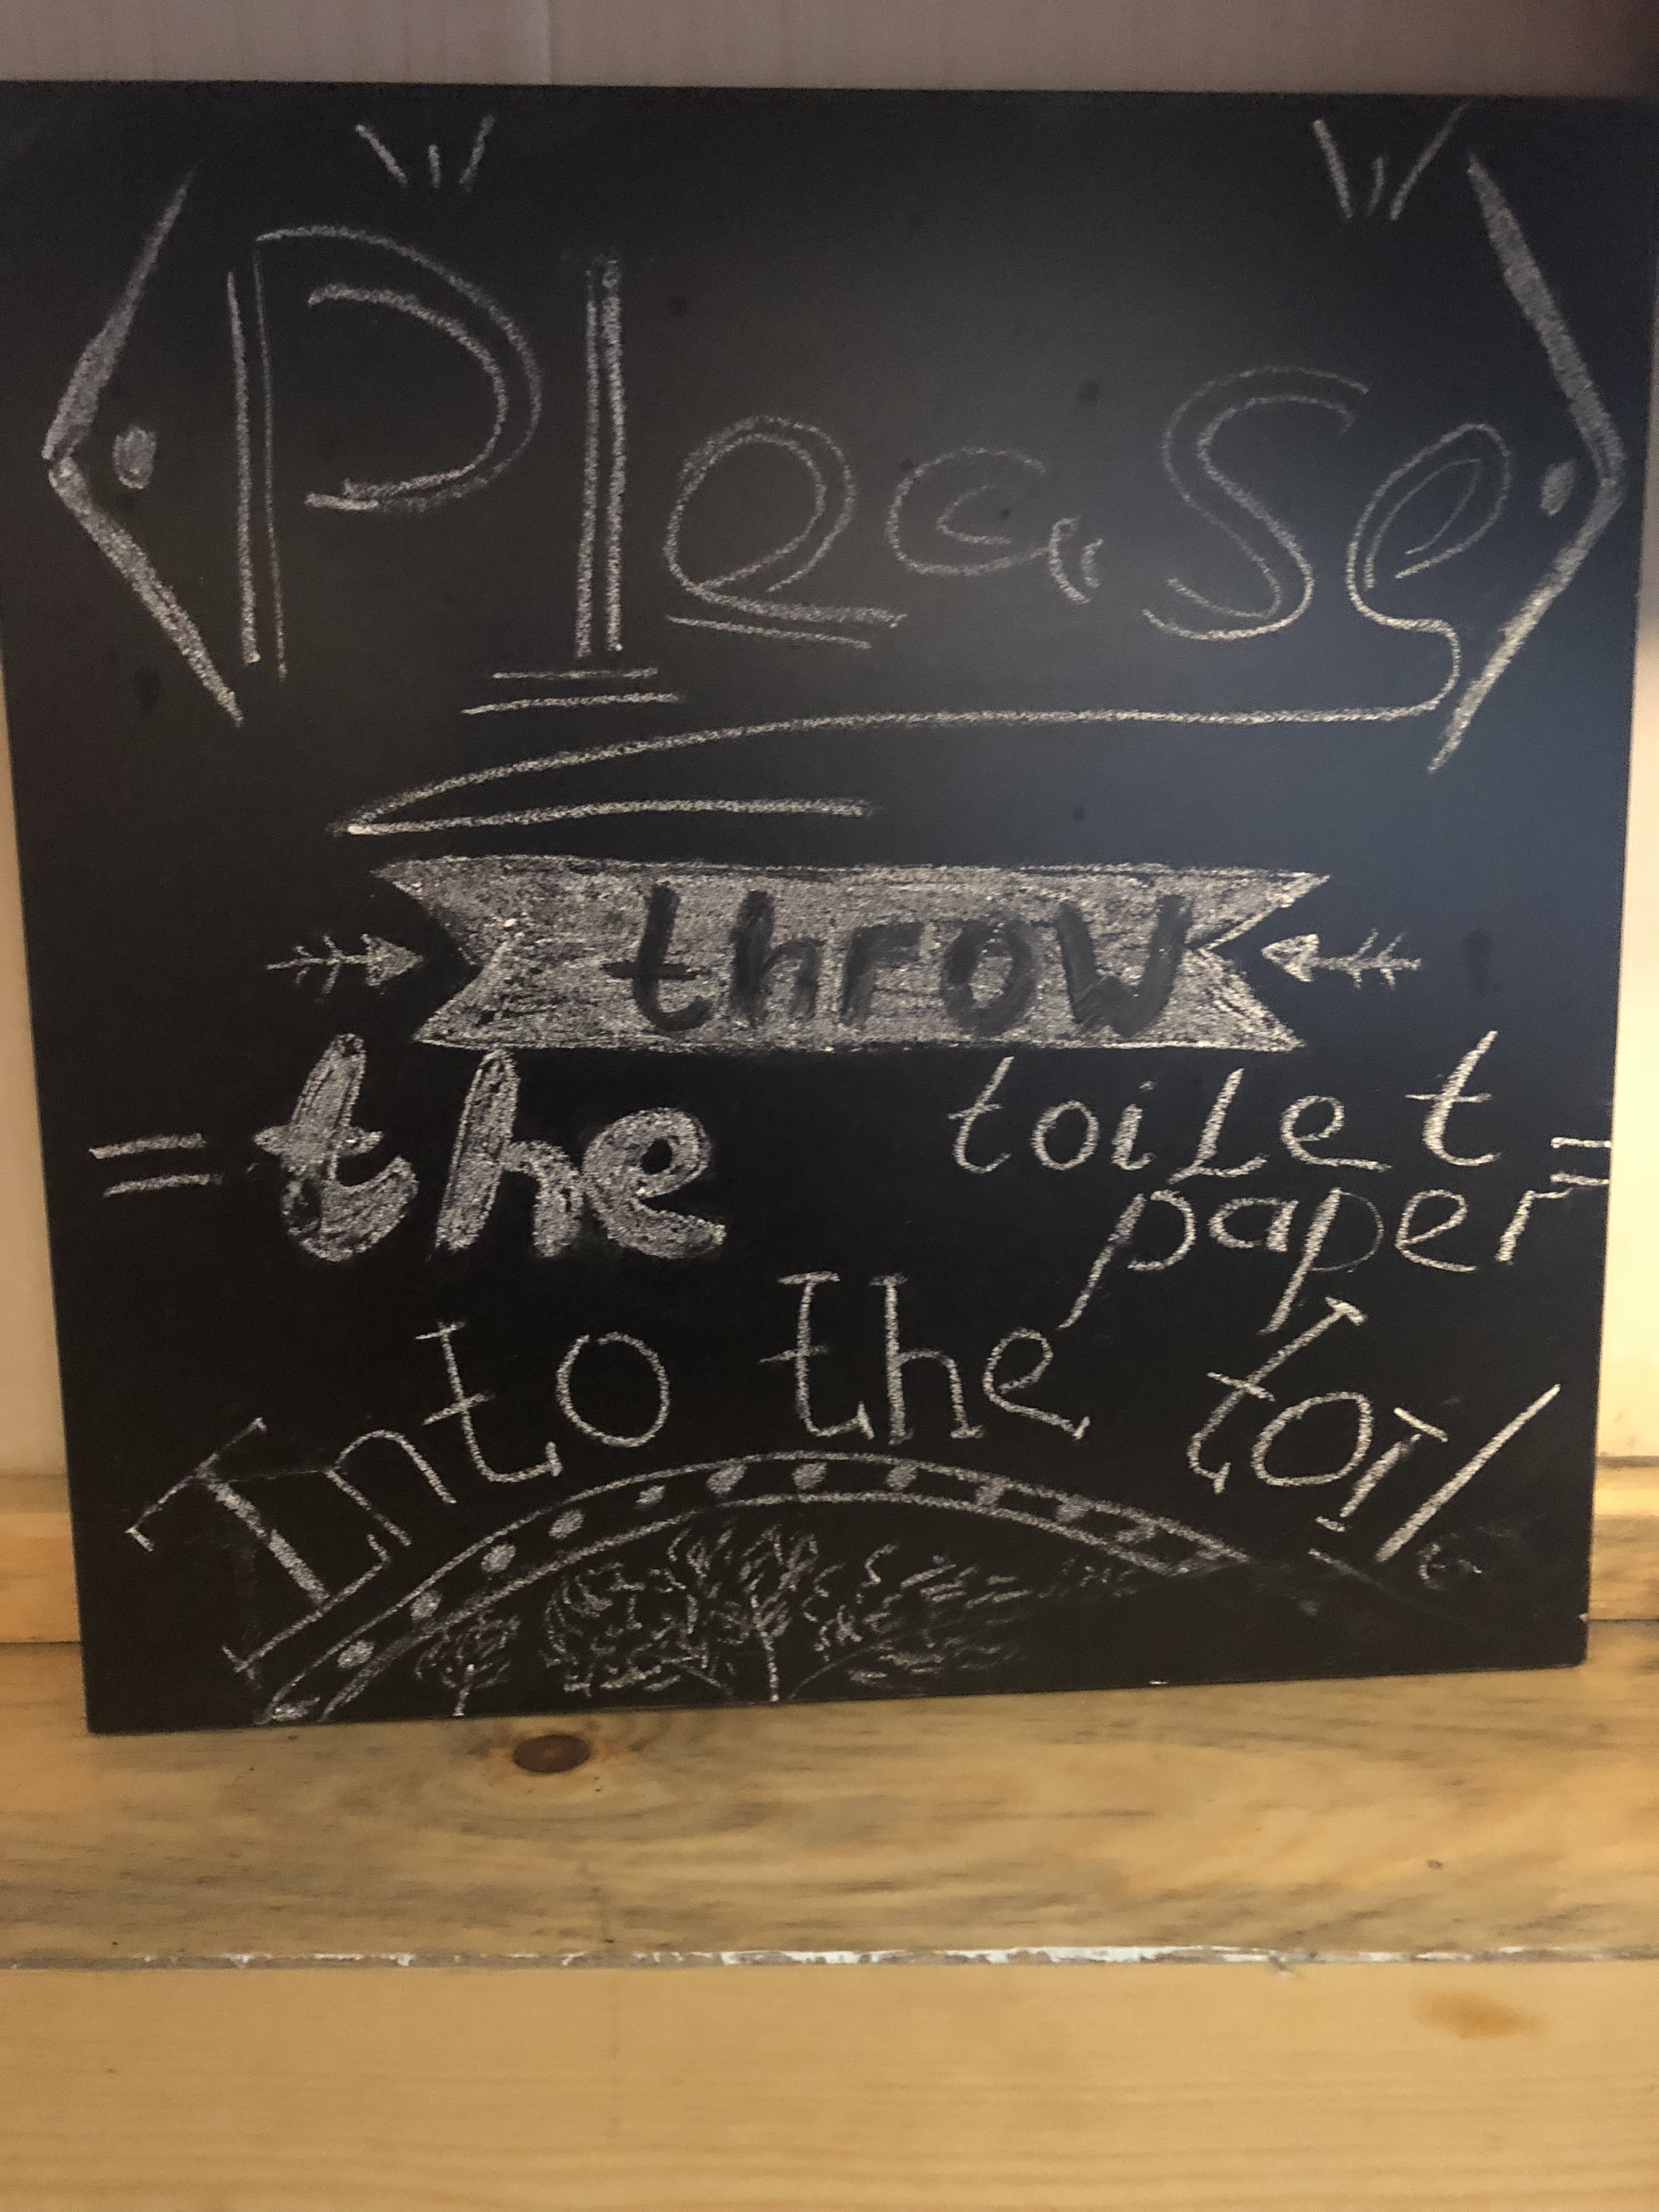 Please
throw
the toiLet
paper
Into the toil